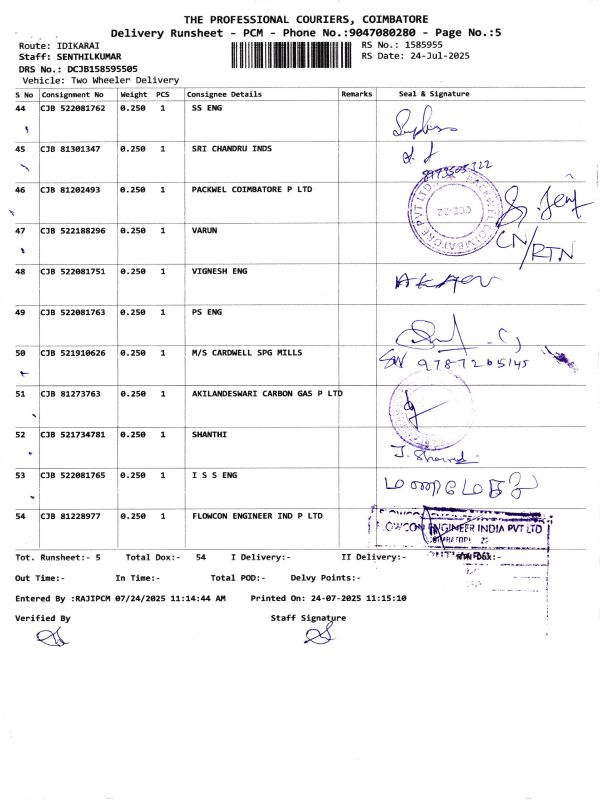 THE PROFESSIONAL COURIERS, COIMBATORE
Delivery Runsheet - PCM - Phone No.:9047080280 - Page No.:5
Route: IDIKARAI RS No.: 1585955
Staff: SENTHILKUMAR RS Date: 24-Jul-2025
DRS No.: DCJB158595505
Vehicle: Two Wheeler Delivery
S No Consignment No Weight PCS Consignee Details Remarks Seal & Signature
44 CJB 522081762 0.250 1 SS ENG
45 CJB 81301347 0.250 1 SRI CHANDRU INDS
46 CJB 81202493 0.250 1 PACKWEL COIMBATORE P LTD
PACKWEL COIMBATORE PVT LTD
CN/RTN
47 CJB 522188296 0.250 1 VARUN
48 CJB 522081751 0.250 1 VIGNESH ENG
49 CJB 522081763 0.250 1 PS ENG
50 CJB 521910626 0.250 1 M/S CARDWELL SPG MILLS
51 CJB 81273763 0.250 1 AKILANDESWARI CARBON GAS P LTD
52 CJB 521734781 0.250 1 SHANTHI
53 CJB 522081765 0.250 1 I S S ENG
54 CJB 81228977 0.250 1 FLOWCON ENGINEER IND P LTD
FLOWCON ENGINEER INDIA PVT LTD
Tot. Runsheet:- 5 Total Dox:- 54 I Delivery:- II Delivery:-
Out Time:- In Time:- Total POD:- Delvy Points:-
Entered By :RAJIPCM 07/24/2025 11:14:44 AM Printed On: 24-07-2025 11:15:10
Verified By Staff Signature